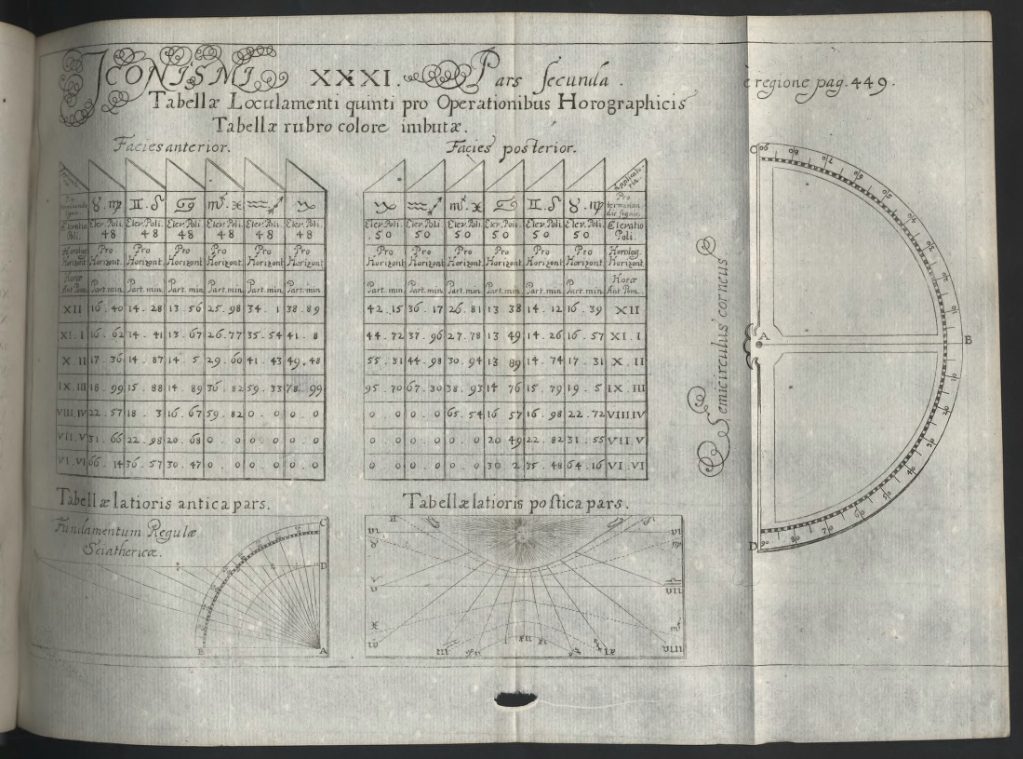 ICONISMI XXXI. Pars secunda. è regione pag. 449.
Tabellæ Loculamenti quinti pro Operationibus Horographicis
Tabellæ rubro colore imbutæ.
Facies anterior.
♉ ♍ ♊ ♌ ♋ ♏ ♓ ♒ ♐ ♑
Elevatio Poli. Elev. Poli. 48 Elev. Poli. 48 Elev. Poli. 48 Elev. Poli. 48 Elev. Poli. 48 Elev. Poli. 48
Horolog. Horizont. Pro Horizont. Pro Horizont. Pro Horizont. Pro Horizont. Pro Horizont. Pro Horizont
Horæ Ant Pom. Part. min. Part. min. Part. min. Part. min. Part. min. Part. min.
XII 16 . 40 14 . 28 13 . 56 25 . 98 34 . 1 38 . 89
XI. I 16 . 62 14 . 41 13 . 67 26 . 77 35 . 54 41 . 8
X. II 17 . 36 14 . 87 14 . 5 29 . 60 41 . 43 49 . 48
IX. III 18 . 99 15 . 88 14 . 89 36 . 82 59 . 33 78 . 99
VIII IV 22 . 57 18 . 3 16 . 67 59 . 82 0 . 0 0 . 0
VII. V 31 . 66 22 . 98 20 . 68 0 . 0 0 . 0 0 . 0
VI. VI 66 . 14 36 . 57 30 . 47 0 . 0 0 . 0 0 . 0
Facies posterior.
Applicatoria.
♑ ♒ ♐ ♏ ♓ ♋ ♊ ♌ ♉ ♍ Pro
Elev. Poli. 50 Elev. Poli. 50 Elev. Poli. 50 Elev. Poli. 50 Elev. Poli. 50 Elev. Poli. 50 Elevatio Poli.
Pro Horizont Pro Horizont. Pro Horizont. Pro Horizont. Pro Horizont. Pro Horizont. Horolog. Horizont.
Part. min. Part. min. Part. min. Part. min. Part. min. Part. min. Horæ Ant Pom.
42 . 15 36 . 17 26 . 81 13 38 14 . 12 16 . 39 XII
44 . 72 37 . 96 27 . 78 13 49 14 . 26 16 . 57 XI. I
55 . 31 44 . 98 30 . 94 13 89 14 . 74 17 . 31 X. II
95 . 70 67 . 30 38 . 93 14 76 15 . 79 19 . 5 IX. III
0 . 0 0 . 0 65 . 54 16 57 16 . 98 22 . 72 VIII IV
0 . 0 0 . 0 0 . 0 20 49 22 . 82 31 . 55 VII. V
0 . 0 0 . 0 0 . 0 30 2 35 . 48 64 . 16 VI. VI
Tabellæ latioris antica pars.
Fundamentum Regulæ
Sciathericæ.
C
D
B A
Tabellæ latioris postica pars.
VI
V VII
IV III XII IX VIII
Semicirculus corneus
C
A B
D